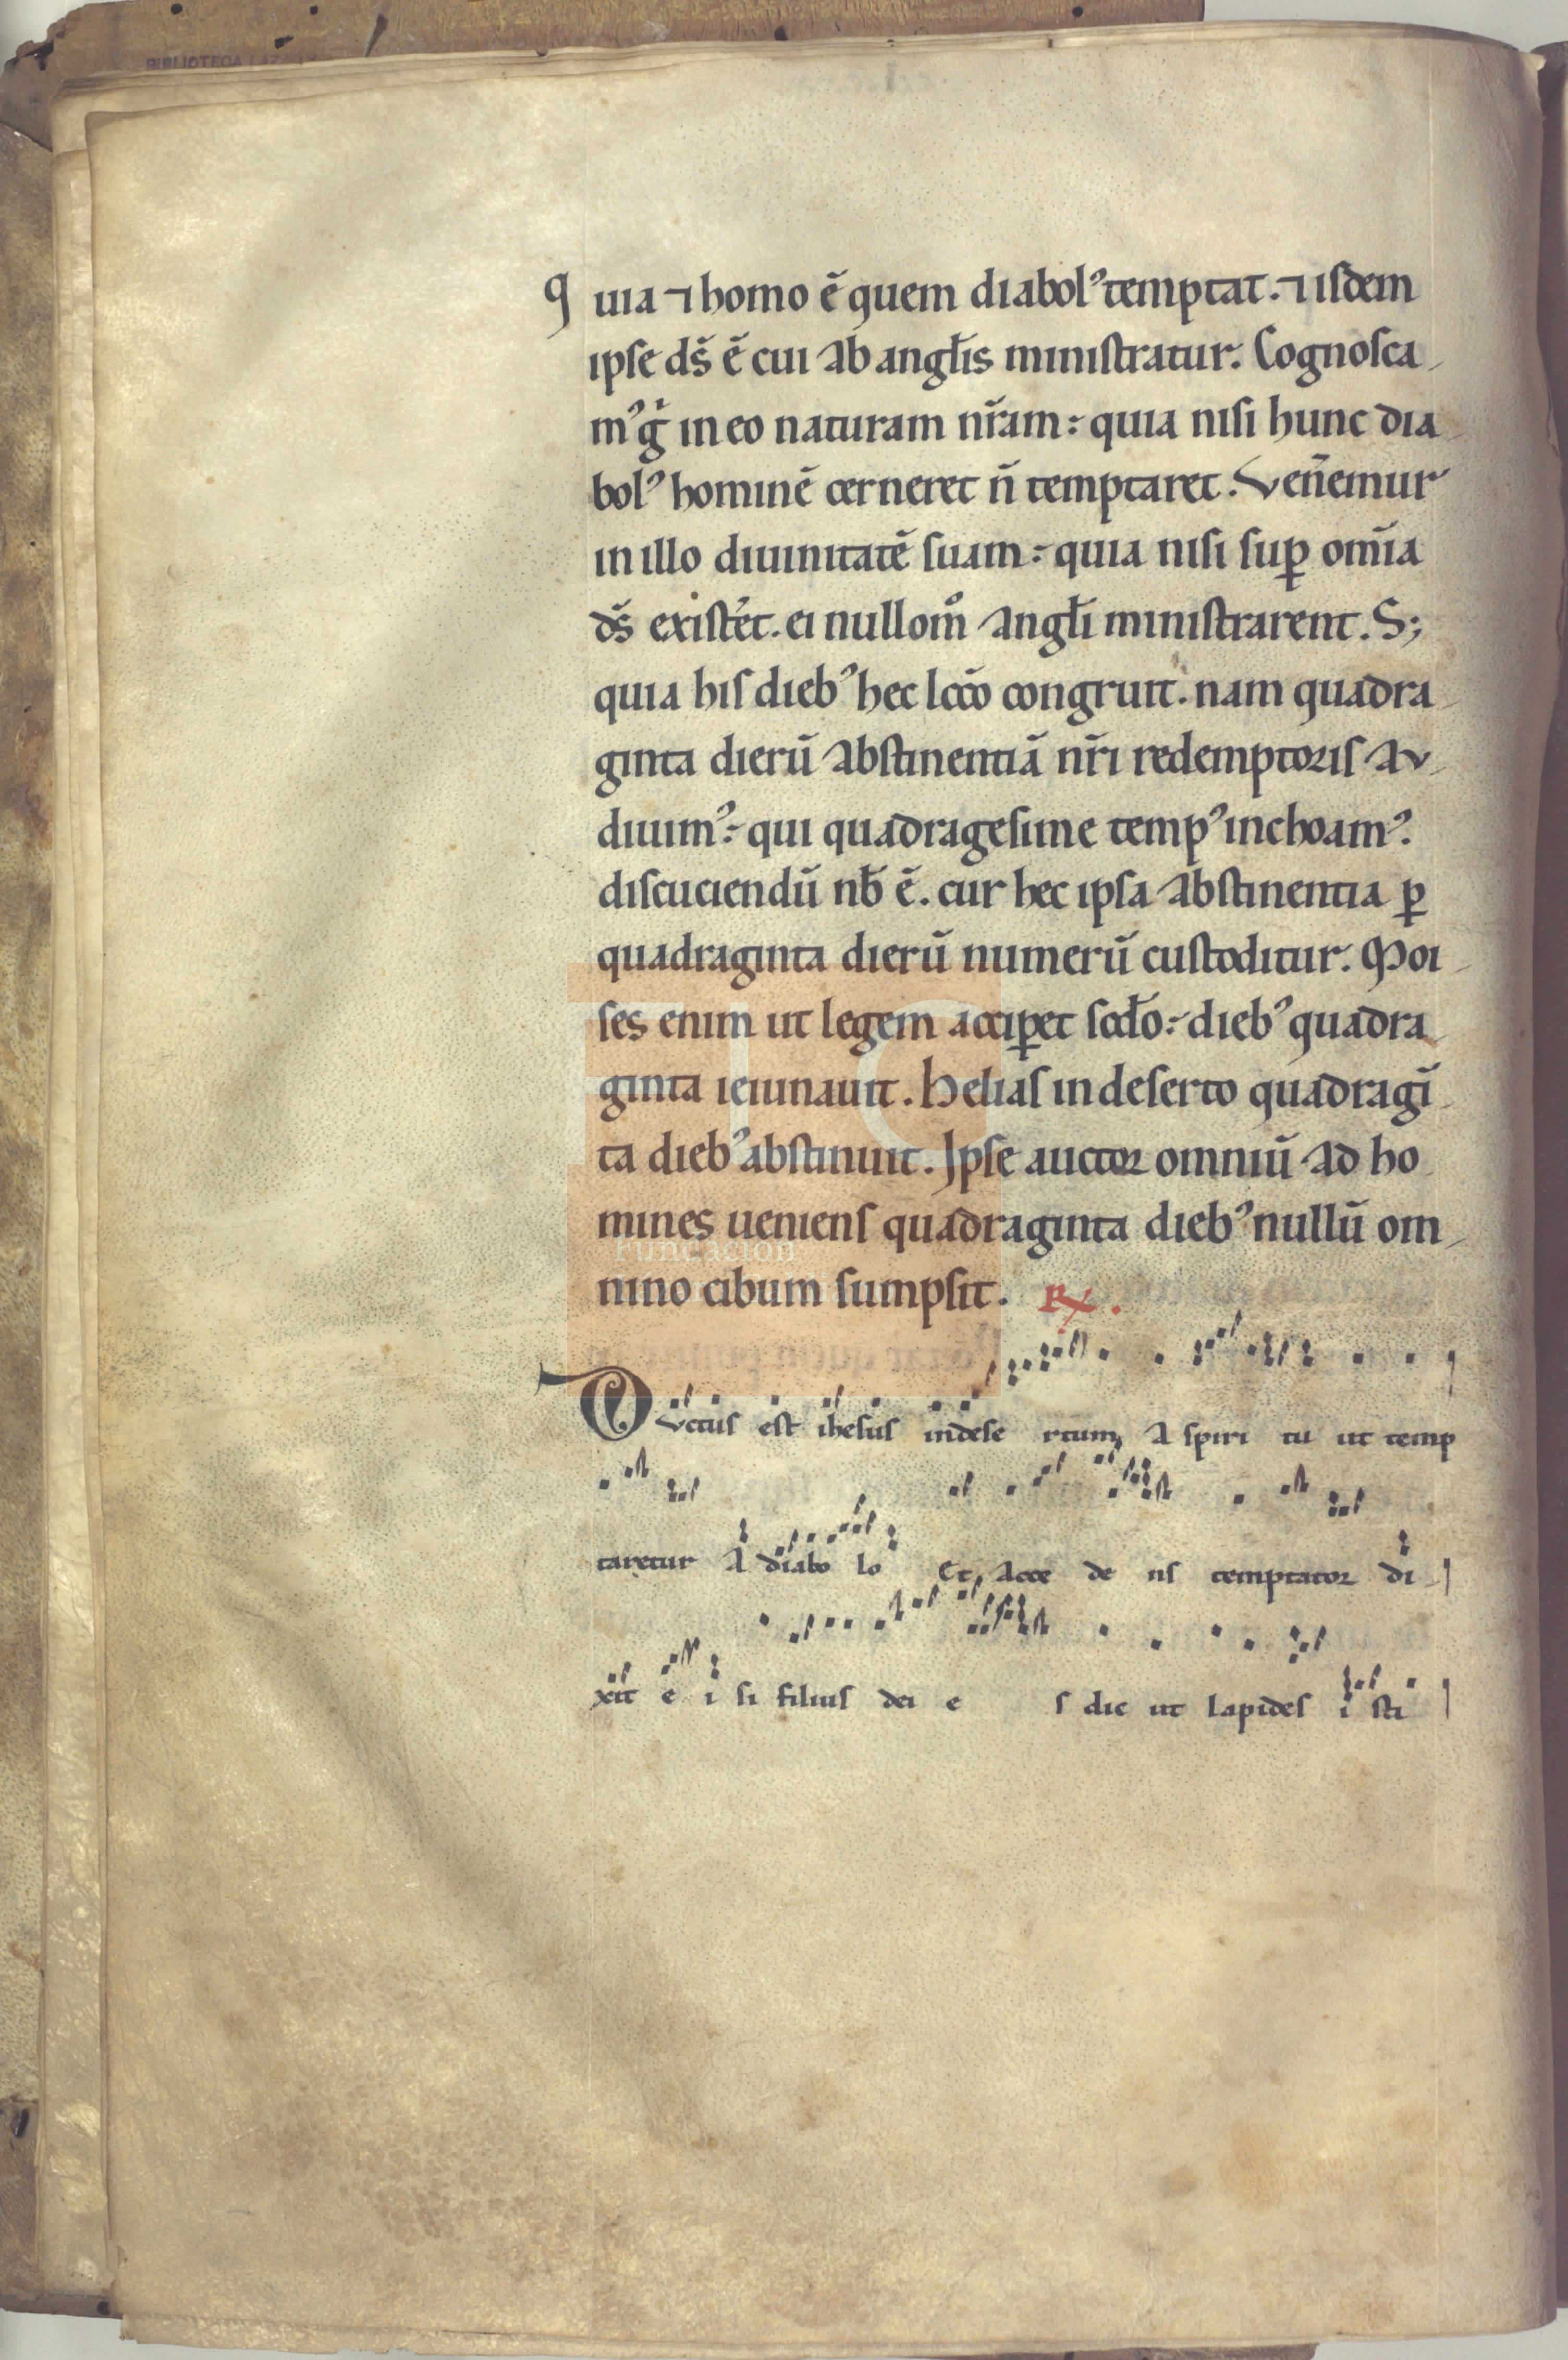 BIBLIOTECA
quia ⁊ homo ē quem diabolꝰ temptat. ⁊ isdem
ipse ds̄ ē cui ab angl̄is ministratur. Cognosca
mꝰ gͥ in eo naturam nr̄am: quia nisi hunc dia
bolꝰ hominē cerneret n̄ temptaret. Ven̄emur
in illo diuinitatē suam: quia nisi suꝑ om̄ia
ds̄ exist̾et. ei nullomͦ angl̄i ministrarent. S;
quia his diebꝰ hec lcc̄o congruit. nam quadra
ginta dierū abstinentiā nr̄i redemptoris au
diuimꝰ: qui quadragesime tempꝰ inchoamꝰ.
discuciendū nb̄ ē. cur hec ipsa abstinentia ꝑ
quadraginta dierū numerū custoditur. Moi
ses enim ut legem acciꝑet scd̄o: diebꝰ quadra
ginta ieiunauit. Helias in deserto quadragī
ta diebꝰ abstinuit. Ipse auctor omniū ad ho
mines ueniens quadraginta diebꝰ nullū om
nino cibum sumpsit. ℟.
Ductus est ihesus indese rtum a spiri tu ut temp
taretur a diabo lo Et acce de ns temptator di
xit e i si filius dei e s dic ut lapides i sti
Fundación